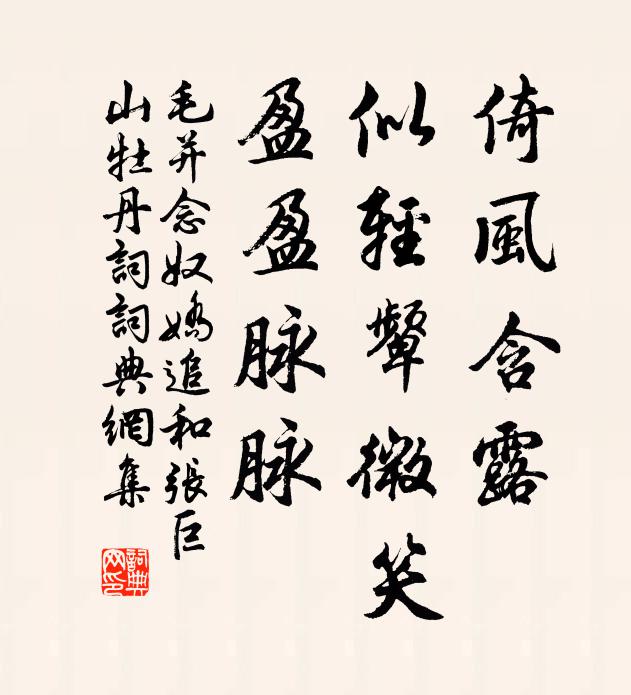 倚風含露
似輕顰微笑
盈盈脉脉
毛并念奴嬌追和張巨
山牡丹詞詞典網集
詞典網印